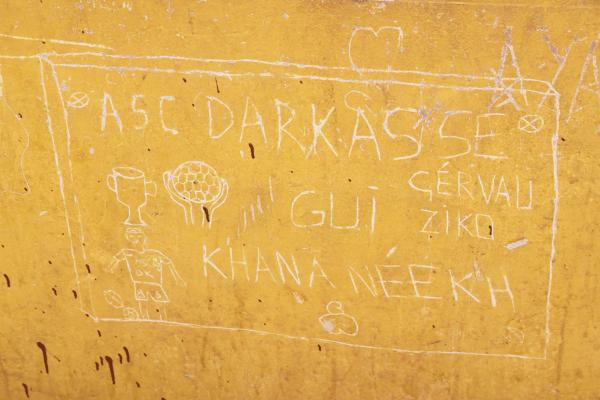 AYA
ASC DARKASSE
GUi
GÉRVAU
ZIKO
KHANA NÉEKH